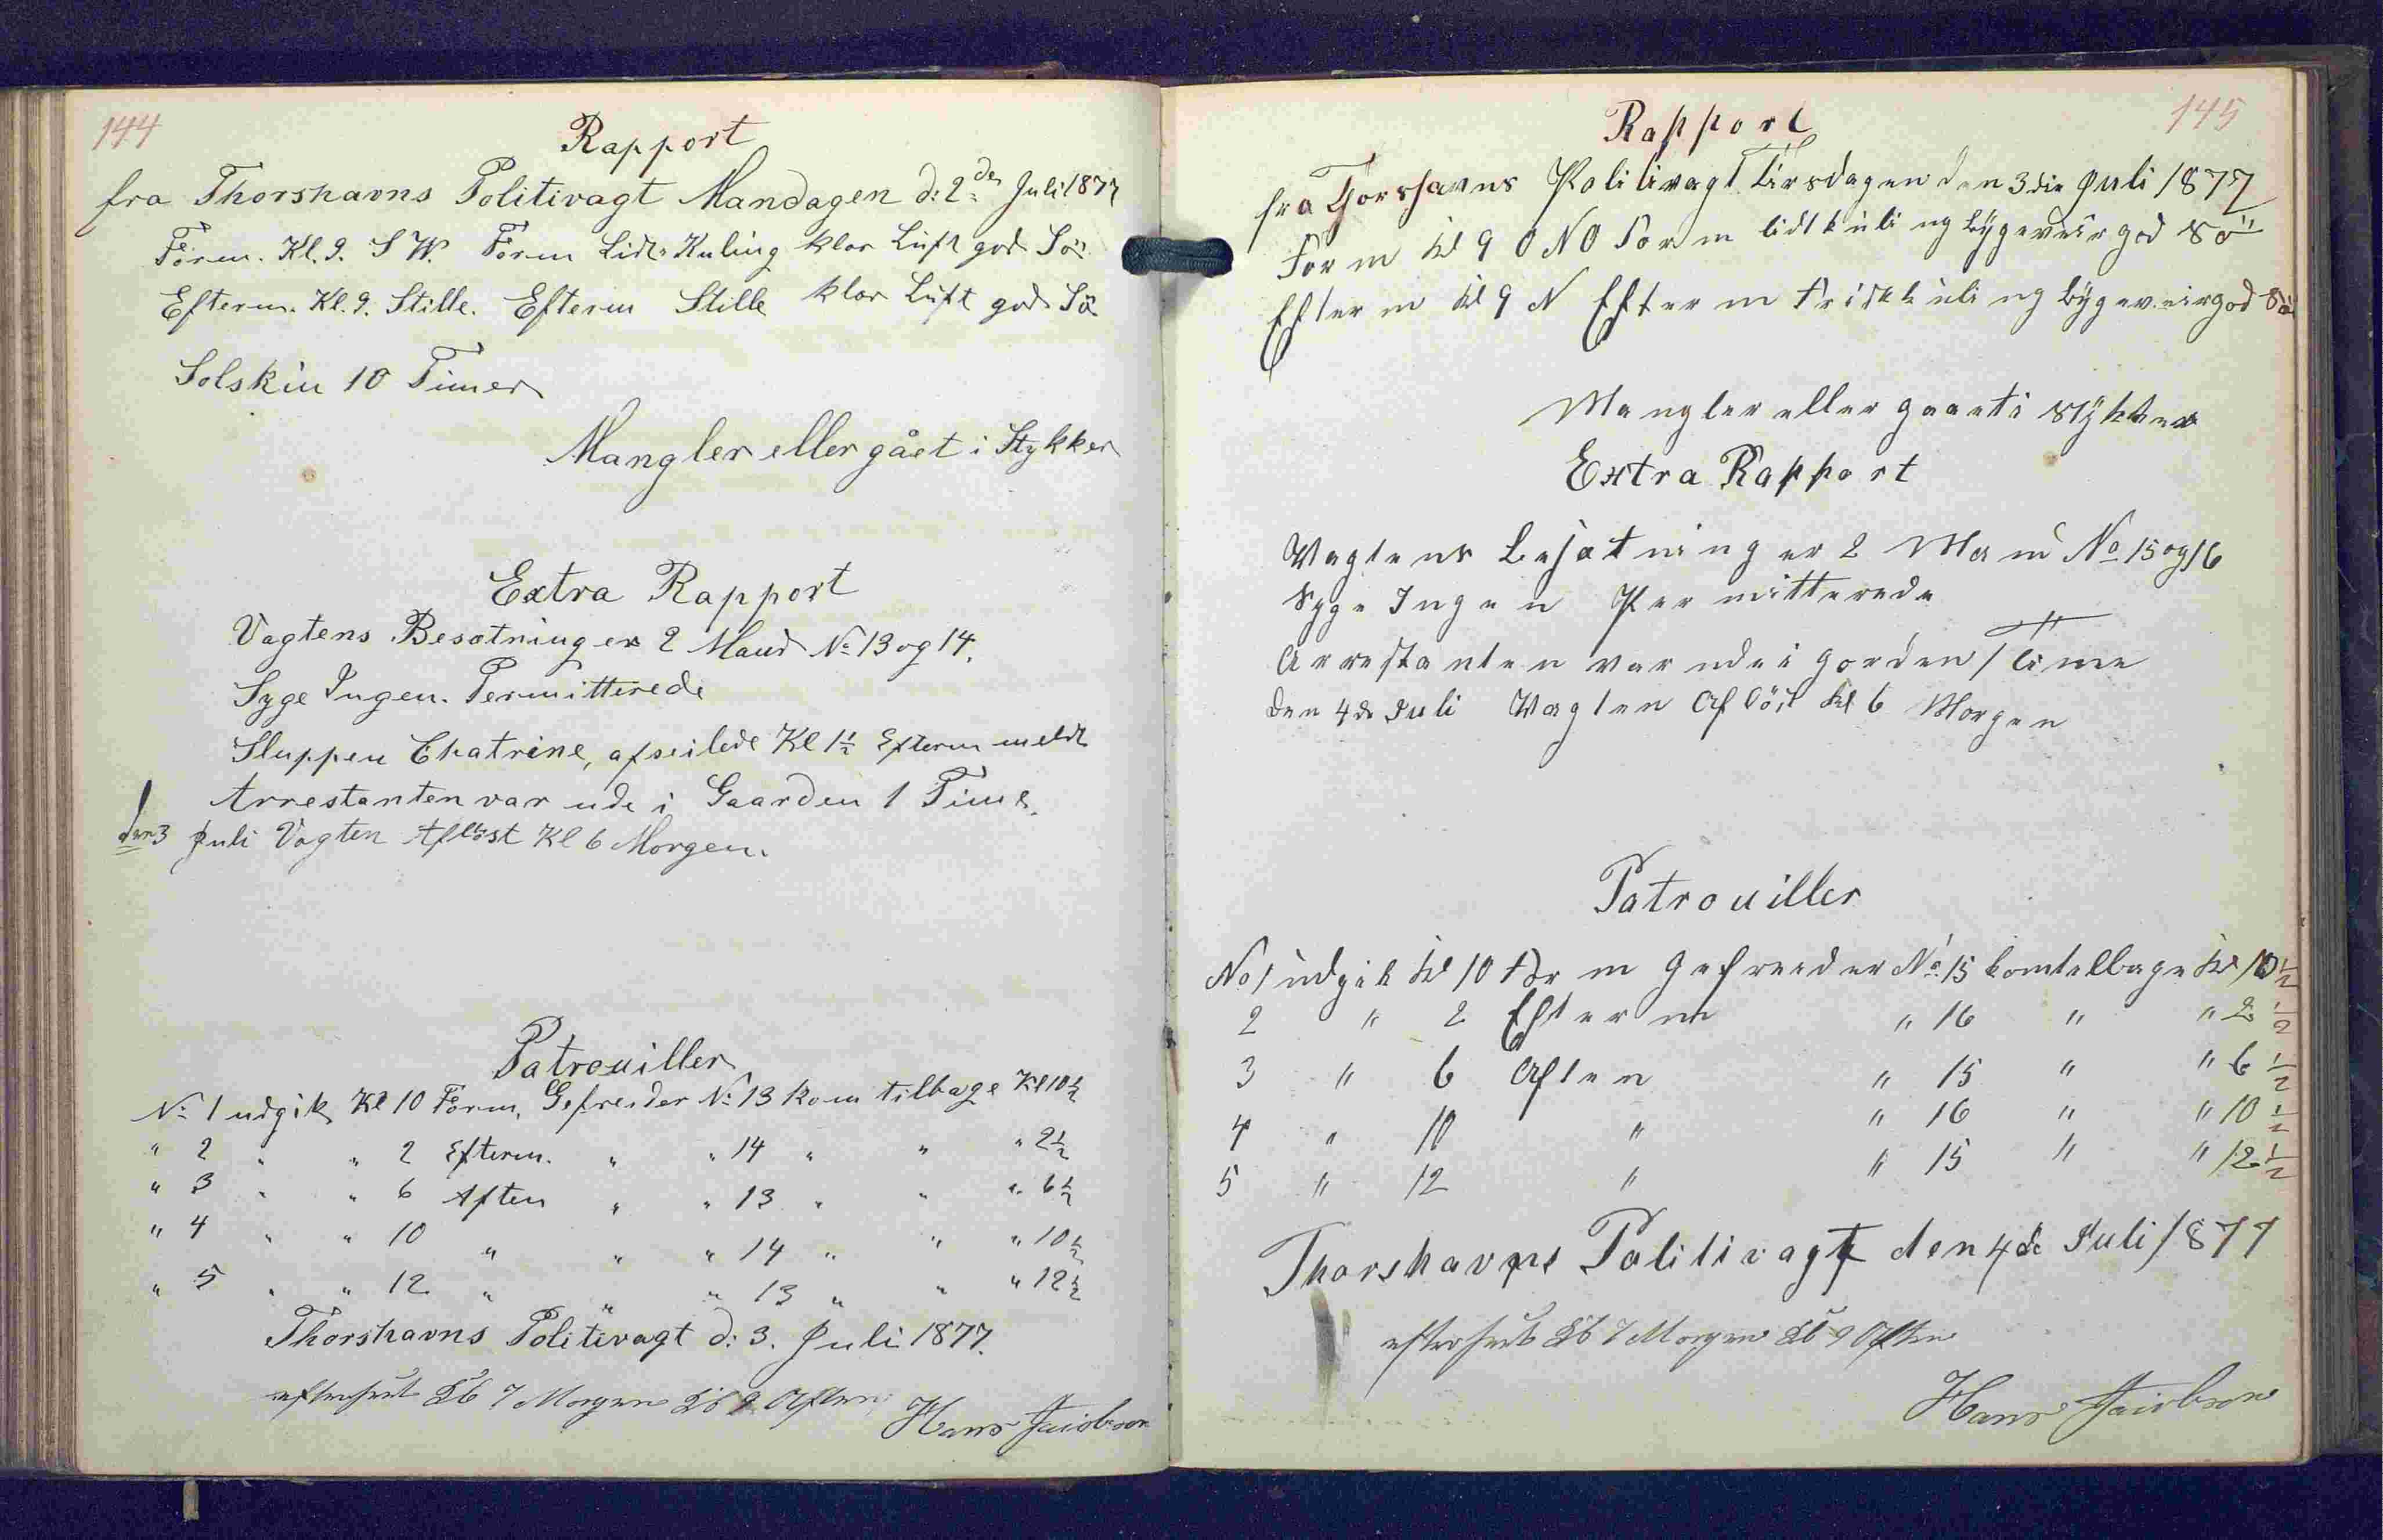 144
Rapport
fra Thorshavns Politivagt Mandagen d: 2den Juli 1877
Form. Kl. 9. S W. Form Lidt Kuling klar Luft god Sö
Efterm. Kl. 9. Stille. Efterm Stille klar Luft god Sö
Solskin 10 Timer
Mangler eller gået i Stykker
Extra Rapport
Vagtens Besætning er 2 Mand No 13 og 14.
Syge Ingen. Permitterede
Sluppen Chatrine, afseilede Kl 1½ Efterm meldt
Arrestanten var ude i Gaarden 1 Time.
den 3 Juli Vagten Aflöst Kl 6 Morgen.
Patrouiller
No 1 udgik Kl 10 Form. Gefreider No 13 kom tilbage Kl 10½
" 2 " " 2 Efterm. " " 14 " " " 2½
" 3 " " 6 Aften " " 13 " " " 6½
" 4 " " 10 " " " 14 " " " 10½
" 5 " " 12 " " " 13 " " " 12½
Thorshavns Politivagt d: 3. Juli 1877.
efterseet Kl 7 Morgen Kl 9 Aften
Hans Jacobsen
145
Rapport
fra Thorshavns Politivagt Tirsdagen den 3die Juli 1877
Form Kl 9 O N O Form lidt kuling bygeveir god Sö
Efterm Kl 9 N Efterm frisk kuling bygeveir god Sö
Mangler eller gaaet i Stykker
Extra Rapport
Vagtens Besætning er 2 Mand No 15 og 16
Syge Ingen Permitterede
Arrestanten var ude i gorden 1 Time
den 4de Juli Vagten Aflöst Kl 6 Morgen
Patrouiller
No 1 udgik Kl 10 Form Gefreider No 15 kom telbage Kl 10½
2 " 2 Efterm " 16 " " 2½
3 " 6 Aften " 15 " " 6½
4 " 10 " " 16 " " 10½
5 " 12 " " 15 " " 12½
Thorshavns Politivagt den 4de Juli 1877
efterseet Kl 7 Morgen Kl 9 Aften
Hans Jacobsen